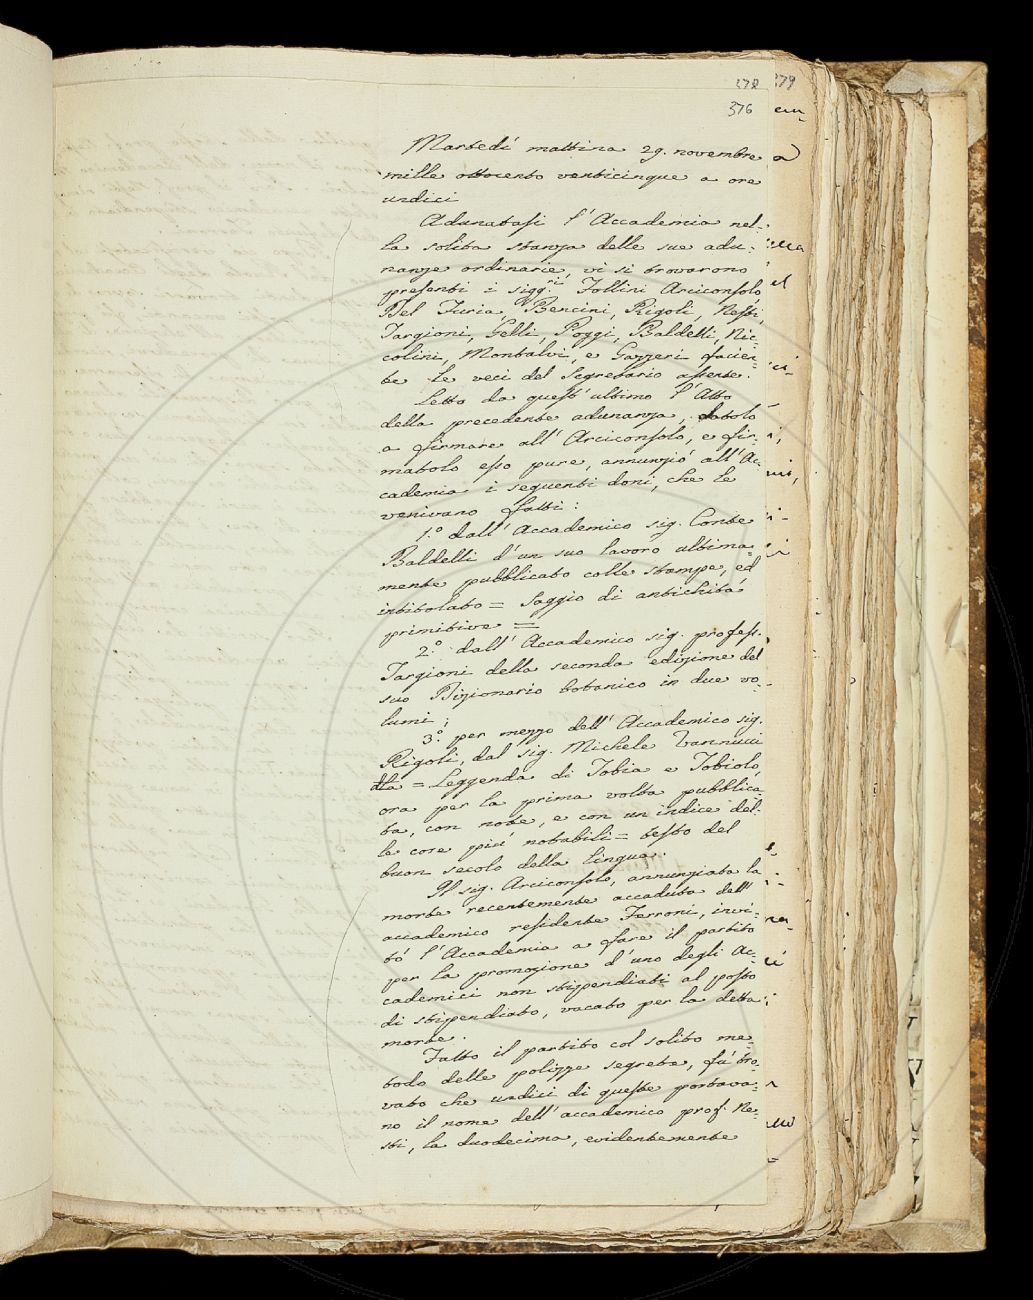 378 379
376
Martedí mattina 29. novembre
mille ottocento venticinque a ore
undici
Adunatasi l'Accademia nel-
la solita stanza delle sue adu-
nanze ordinarie, vi si trovarono
presenti i sigg.ri Follini Arciconsolo
Del Furia, Bencini, Rigoli, Nesti,
Targioni, Gelli, Poggi, Baldelli, Nic-
colini, Montalvi, e Gazzeri facien-
te le veci del Segretario assente.
Letto da quest'ultimo l'Atto
della precedente adunanza, datolo
a firmare all'Arciconsolo, e fir-
matolo esso pure, annunziò all'Ac-
cademia i seguenti doni, che le
venivano fatti:
1.° dall'Accademico sig. Conte
Baldelli d'un suo lavoro ultima-
mente pubblicato colle stampe, ed
intitolato = Saggio di antichità
primitive =
2.° dall'Accademico sig. profess.
Targioni della seconda edizione del
suo Dizionario botanico in due vo-
lumi;
3.° per mezzo dell'Accademico sig.
Rigoli, dal sig. Michele Vannucci
dla = Leggenda di Tobia e Tobiolo
ora per la prima volta pubblica-
ta, con note, e con un indice del-
le cose più notabili = testo del
buon secolo della lingua.
Il sig. Arciconsolo, annunziata la
morte recentemente accaduta dell'
accademico residente Ferroni, invi-
tò l'Accademia a fare il partito
per la promozione d'uno degli Ac-
cademici non stipendiati al posto
di stipendiato, vacato per la detta
morte.
Fatto il partito col solito me-
todo delle polizze segrete, fù tro-
vato che undici di queste portava-
no il nome dell'accademico prof. Ne-
sti, la duodecima, evidentemente